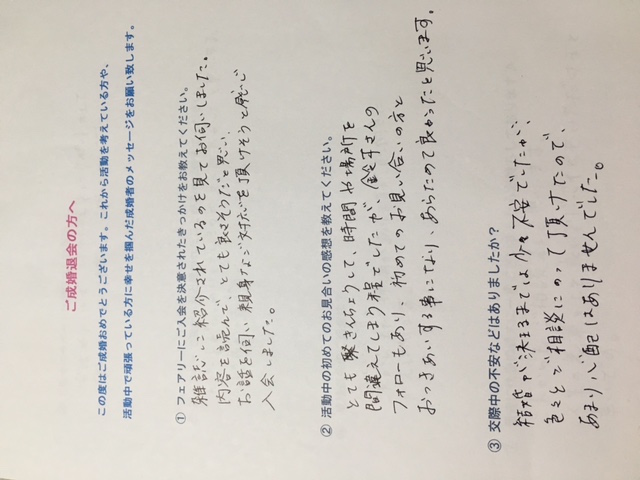 ご成婚退会の方へ
この度はご成婚おめでとうございます。これから活動を考えている方や、
活動中で頑張っている方に幸せを掴んだ成婚者のメッセージをお願い致します。
① フェアリーにご入会を決意されたきっかけをお教えてください。
雑誌に紹介されているのを見てお伺いしました。
内容を読んで、とても良さそうだと思い、
お話を伺い親身なご対応を頂けそうと感じ
入会しました。
② 活動中の初めてのお見合いの感想を教えてください。
とても緊張して、時間や場所を
間違えてしまう程でしたが、鈴木さんの
フォローもあり、初めてのお見合いの方と
おつきあいする事になり、あらためて良かったと思います。
③ 交際中の不安などはありましたか？
結婚が決まるまでは少々不安でしたが、
色々とご相談にのって頂けたので、
あまり心配はありませんでした。